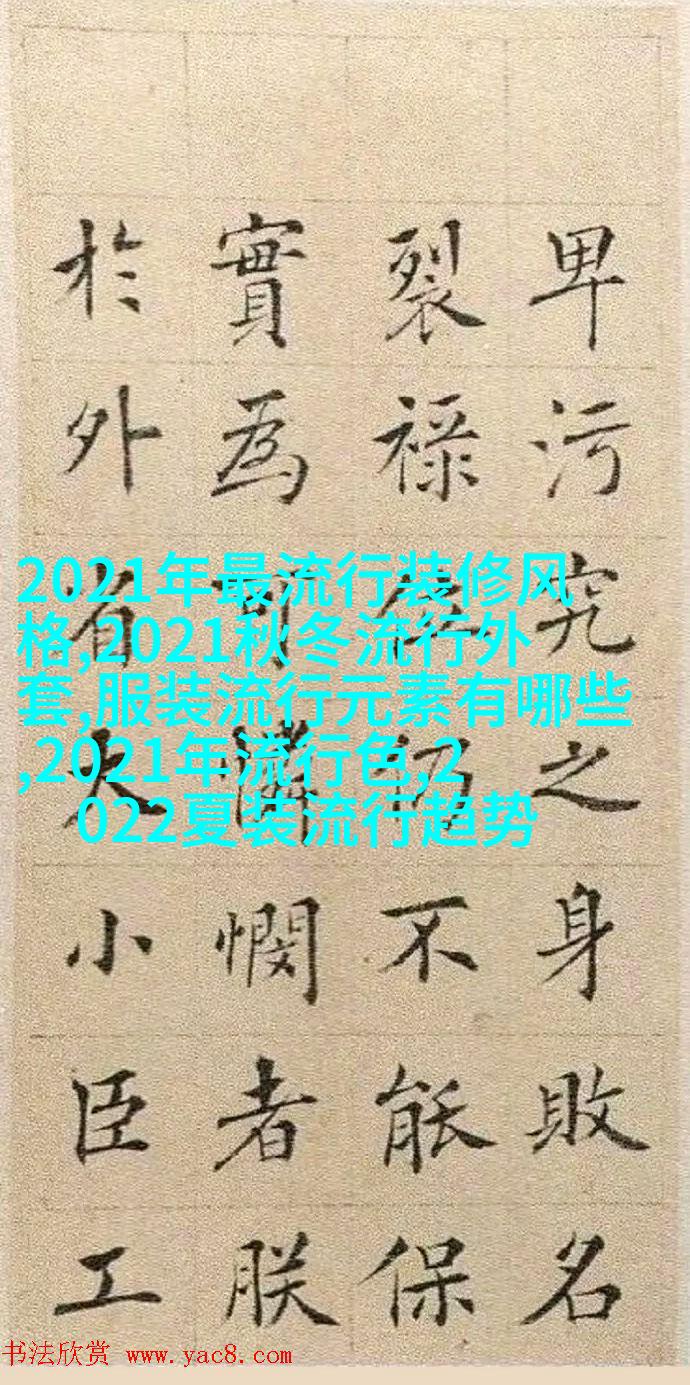 卑污究之身敗名
裂禄位仍不能保
實為可憐憫者朕
於外省大小臣工
2021年最流行装修风
格,2021秋冬流行外
套,服装流行元素有哪些
,2021年流行色,2
022夏装流行趋势
书法欣赏 www.yac8.com